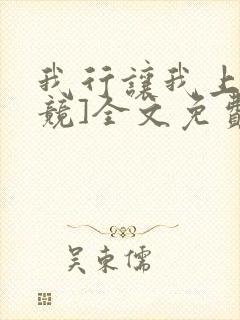 我行讓我上
競]全文免費
吴東儒